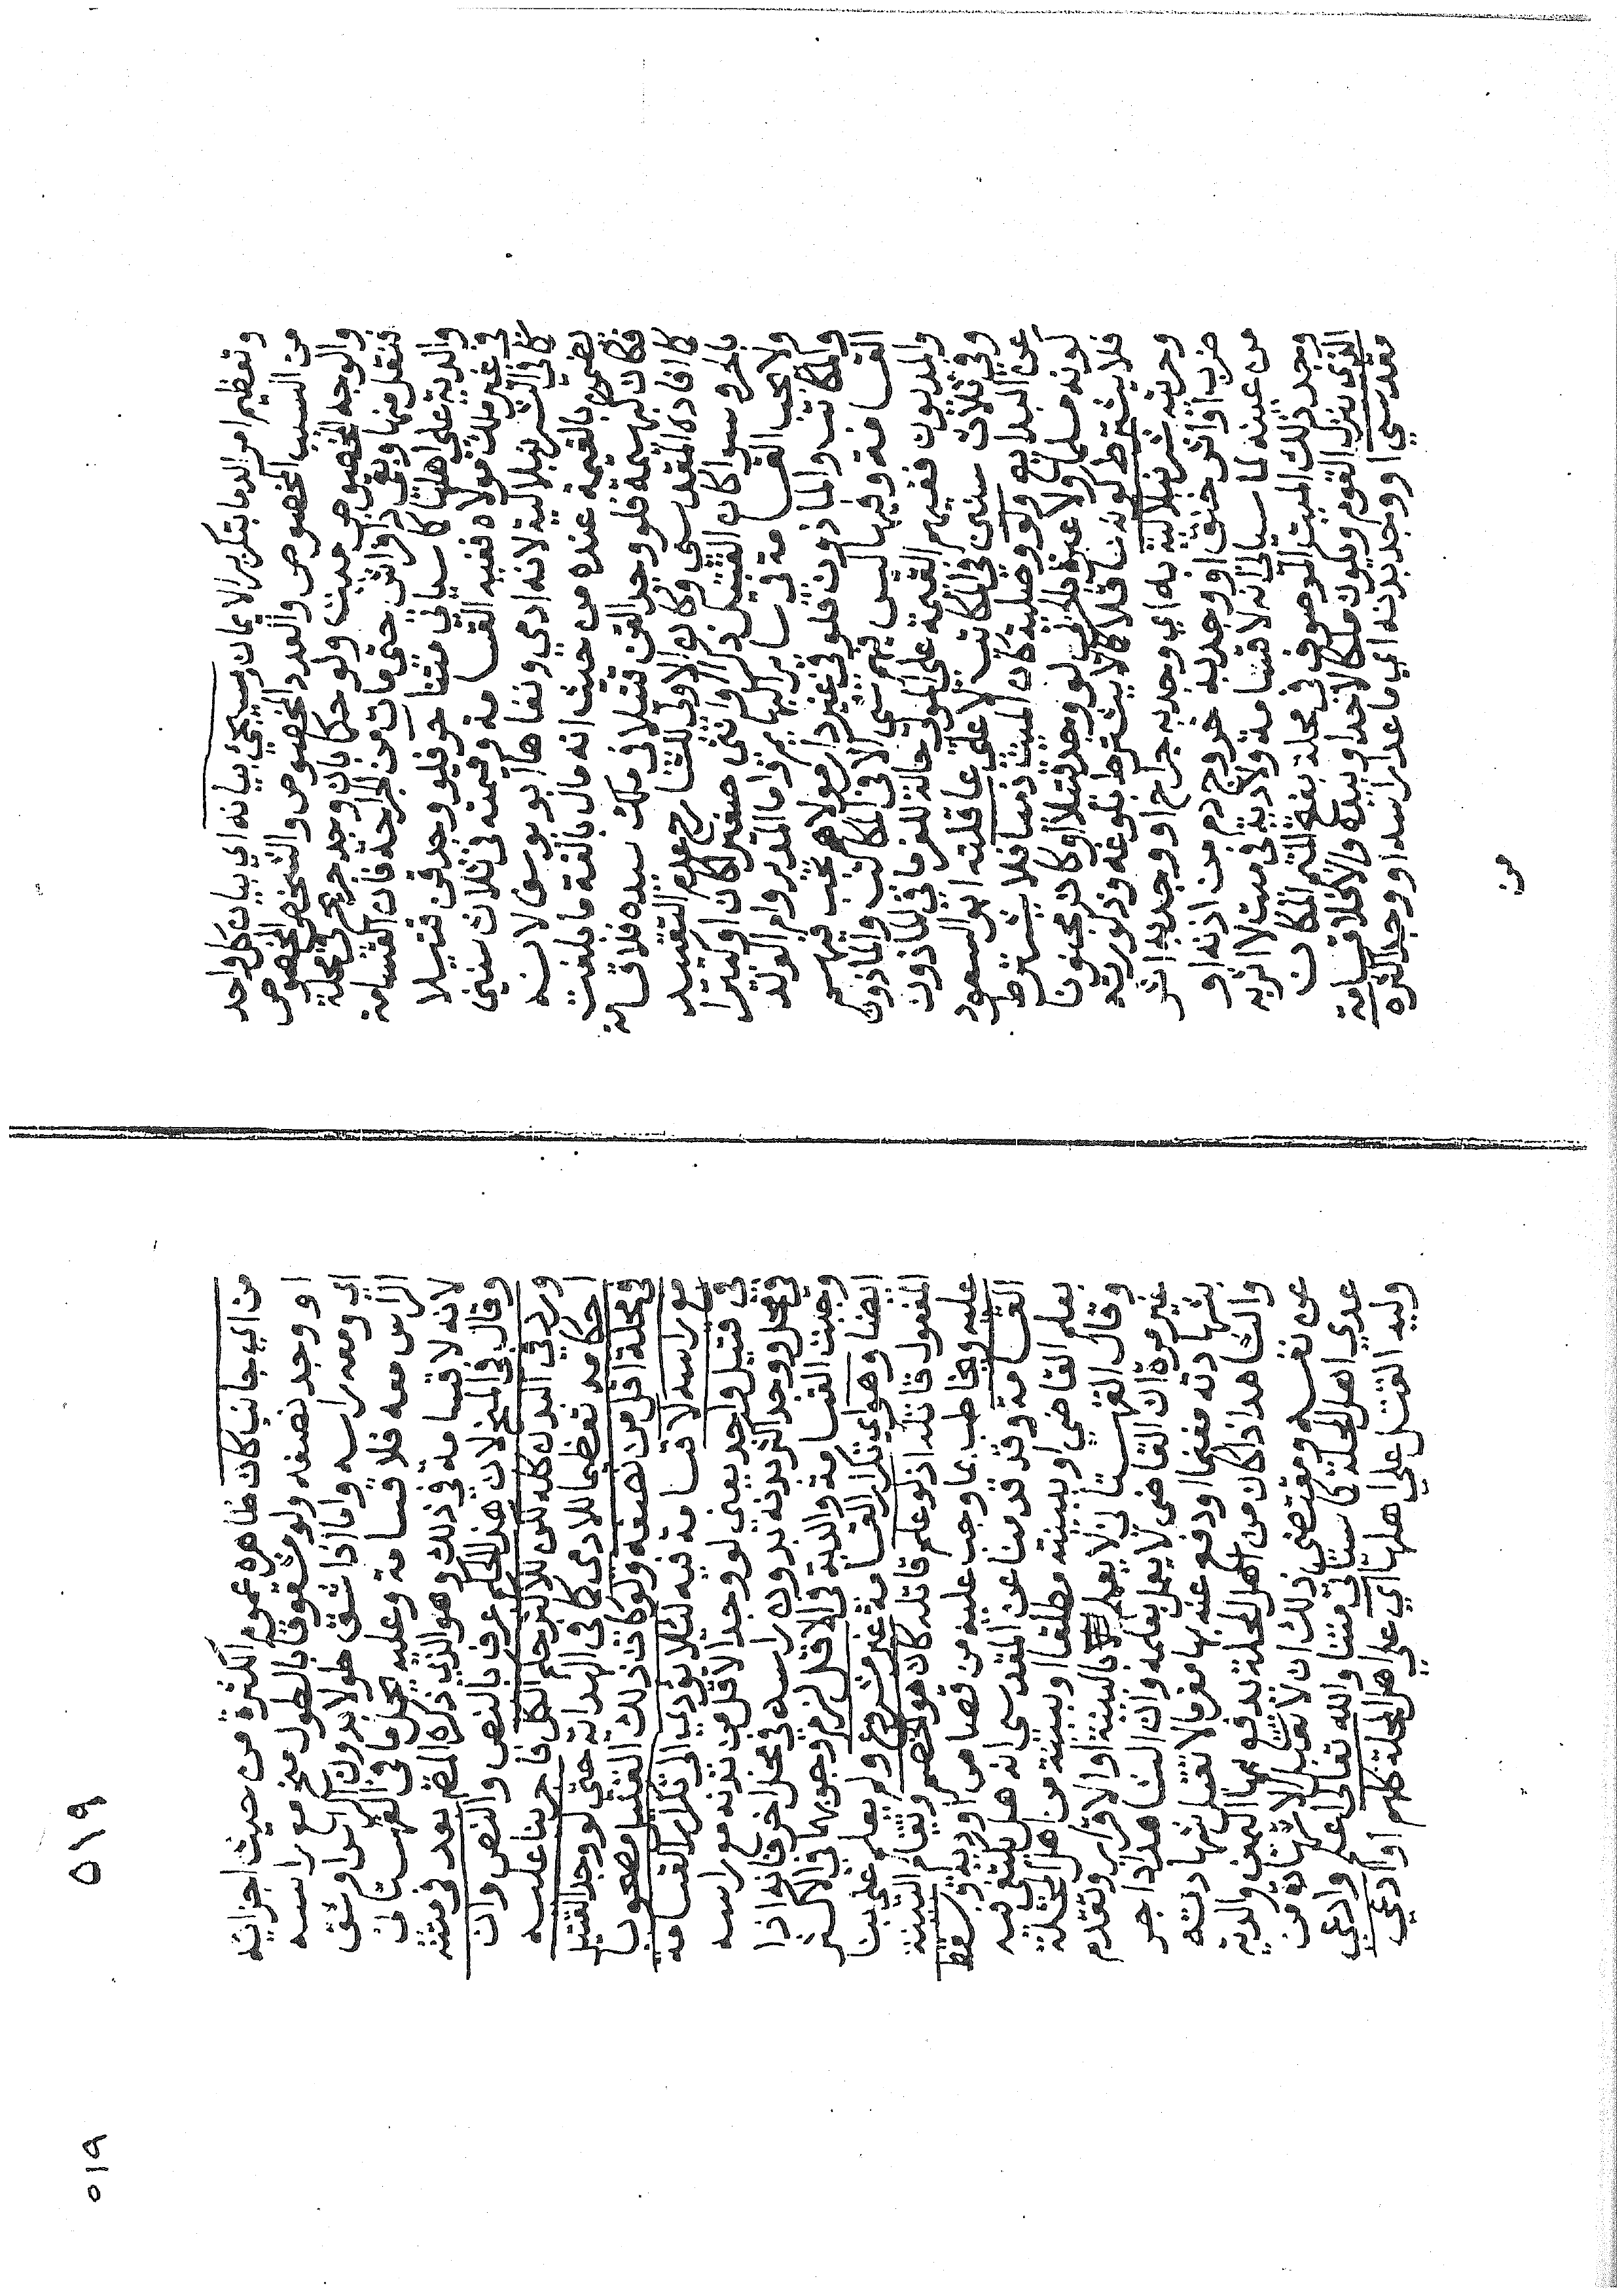 وتعظيم امر الدما بتكرير الايمان وسيجي بيانه اي بيان كل واحد
من السبب المخصوص والعدد المخصوص والشخص المخصوص
والوجه المخصوص ميت ولو حكما بان وجد جريح في محلة
فنقل منها وبقي ذا فراش حتى مات من الجراحة فان القسامة
والدية على اهلها كما سياتي متنا حر فلو وجد قن قتيلا
في غير ملك مولاه ففيه القسامة وقيمته في ثلاث سنين
كما في الشرنبلالية لانه ادمي ونفاها ابو يوسف لانه
يضمن بالقيمة عنده من حيث انه مال بالغة ما بلغت
فكان كبهيمة فلو وجد القن قتيلا في ملك سيده فلا قسامة
كما افاده المقدسي وكان الاولى للشارح عدم التقييد
بالحر سوا كان القتيل ذكرا او انثى صغيرا كان او كبيرا
ولا يجب القسامة في ساير البهايم واما المدبر وام الولد
والمكاتب والماذون فلو في غير دار مولاهم يجب فيهم
القسامة وفيها ليس فيهم شي الا في المكاتب والماذون
والمديون ففيهم القيمة على المولى حالة للغرما في الماذون
وفي ثلاث سنين في المكاتب لا على عاقلته ابو السعود
عن البدايع ولو وصلية كان الميت ذميا فلا يشترط
كونه مسلما ولا عبرة فلو وجد قتيلا او كان مجنونا
فلا يشترط كونه عاقلا كما لا يشترط بلوغه وذكوريته
وحريته شرنبلالية به اي وجد به جراح او وجد به اثر
ضرب او اثر خنق او وجد به خروج دم من اذنه او
من عينه لما سياتي انه لا قسامة ولا دية في ميت لا اثر به
وجد ذلك الميت الموصوف في محلة بفتح الميم المكان
الذي ينزل القوم ويكون ملكا لاحد او بيده والا فلا قسامة
مقدسي او وجد بدنه اي ما عدا راسه او وجد اكثره
من
من اي جانب كان ظاهره عموم الكثرة من حيث اجزائه
او وجد نصفه ولو مشقوقا بالطول منح مع راسه
اي ومعه راسه واما اذا شق طولا بدون الراس او شق
الراس معه فلا قسامة وعليه يحمل ما في القهستاني
لانه لا قسامة في ذلك وهو الذي ذكره المص بعد في متنه
وقال في المنح لان هذا الحكم عرف بالنص والنص وان
ورد في البدن كله لكن للاكثر حكم الكل فاجرينا عليه
احكامه تعظيما للادمي كما في الهداية حتى لو وجد القتيل
في محلة اقل من نصفه ولو كان ذلك القتيل مصحوبا
مع راسه لا قسامة فيه لئلا يؤدي الى تكرار القسامة
في قتيل واحد يعني لو وجد الاقل من بدنه مع راسه
في محل ووجد اكثر بدنه بدون راسه في محل اخر فانه اذا
وجبت القسامة والدية في الاقل لزم وجوبهما في الاكثر
ايضا وهو اي تكرار القسامة غير مشروع ولم يعلم على بنا
المفعول قاتله اذ لو علم قاتله كان هو الخصم ويقام البينة
عليه ويخاطب بما وجب عليه من قصاص او دية وسقط
القسامة وقد قدمنا عن المقدسي انه هل يكتفي فيه
بعلم القاضي او ببينة مطلقا او ببينة من اهل المحلة
وقال القهستاني لا يعلم الا بالبينة او الاقرار وتقدم
غير مرة ان القاضي لا يعمل بعلمه وان الشاهد اذا جر
بشهادته مغنما او دفع عنه بها مغرما لا تقبل شهادته
والشاهد اذا كان من اهل المحلة يدفع بها اليمين والدية
عن نفسه ومقتضى ذلك ان لا تقبل الا شهادة من
عدى اهل المحلة كما سياتي متنا والله تعالى اعلم وادعى
وليه القتل على اهلها اي على اهل المحلة كلهم او ادعى
٥١٩
٥١٩